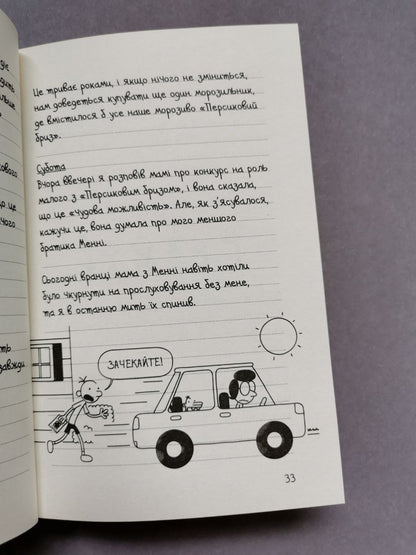 діє
Це триває роками, і якщо нічого не зміниться,
нам доведеться купувати ще один морозильник,
де вмістилося б усе наше морозиво «Персиковий
бриз».
Субота
Вчора ввечері я розповів мамі про конкурс на роль
малого з «Персиковим бризом», і вона сказала,
що це «чудова можливість». Але, як з'ясувалося,
кажучи це, вона думала про мого меншого
братика Менні.
Сьогодні вранці мама з Менні навіть хотіли
було чкурнути на прослуховування без мене,
та я в останню мить їх спинив.
ЗАЧЕКАЙТЕ!
33